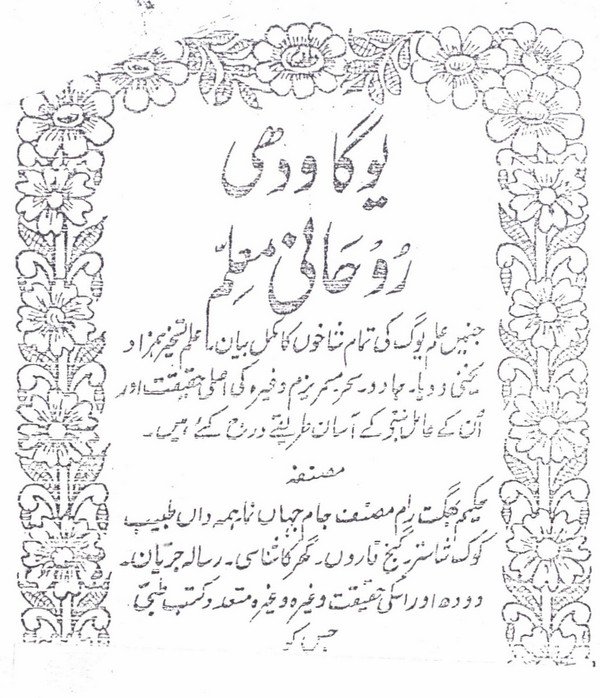 یوگا ودھی
روحانی معلم
جنمیں علم یوگ کی تمام شاخوں کا مکمل بیان۔ علم تسخیر ہمزاد
یکشنی ودیا۔ جادو۔ سحر مسمریزم وغیرہ کی اصلی حقیقت اور
اُن کے عامل بننے کے آسان طریقے درج کئے ہیں۔
مصنفہ
حکیم بھگت رام مصنف جام جہاں نما ہمہ داں طبیب
کوک شاستر۔ گنج قاروں۔ گھر کا سنیاسی۔ رسالہ جریان۔
دودھ اور اسکی حقیقت وغیرہ وغیرہ متعدد کتب طبی
جس کو